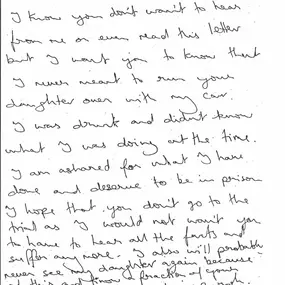 I know you don't want to hear
from me or even read this letter
but I want you to know that
I never meant to run your
daughter over with my car.
I was drunk and didn't know
what I was doing at the time.
I am ashared for what I have
done and deserve to be in prison
I hope that you don't go to the
trial as I would not want you
to have to hear all the facts and
suffer anymore. I also will probably
never see my daughter again because
of this and know a fraction of your